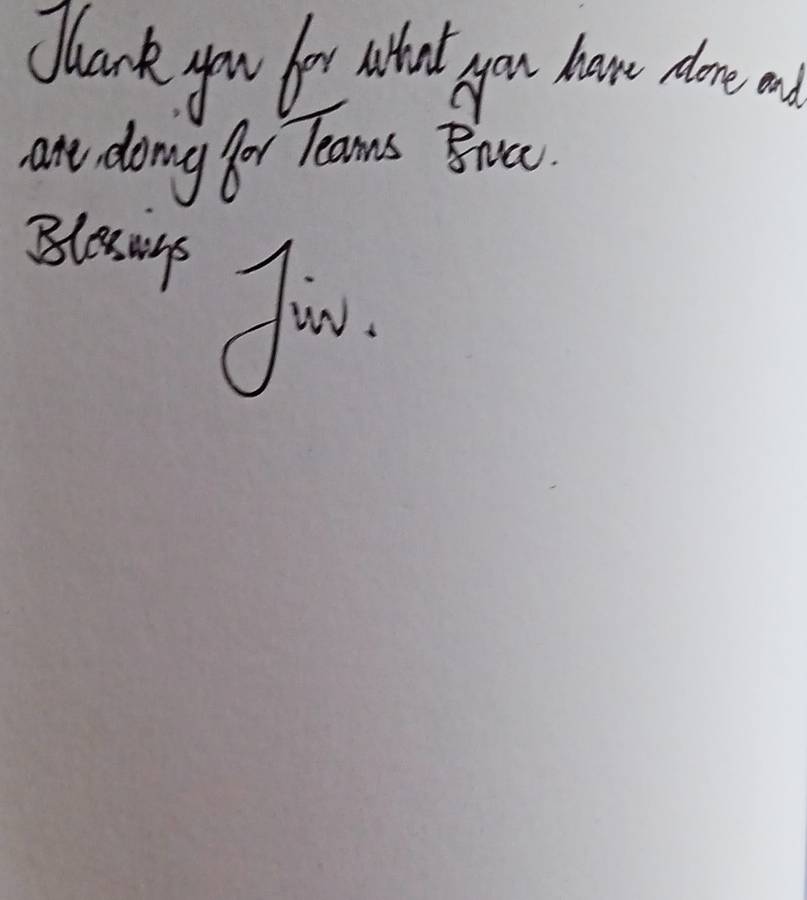 Thank you for what you have done and
are doing for Teams Bruce.
Blessings
Jim.